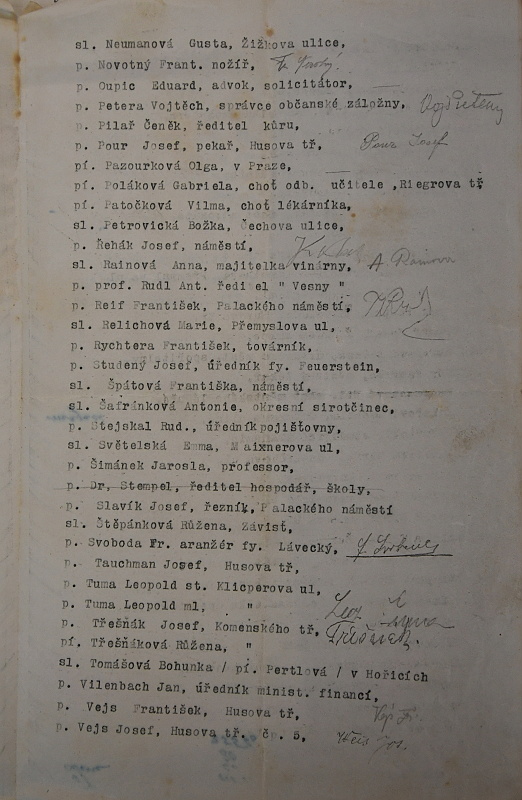 sl. Neumanová Gusta, Žižkova ulice,
p. Novotný Frant. nožíř, Fr. Novotný
p. Oupic Eduard, advok, solicitátor,
p. Petera Vojtěch, správce občanské záložny,
p. Pilař Čeněk, ředitel kůru,
p. Pour Josef, pekař, Husova tř, Pour Josef
pí. Pazourková Olga, v Praze,
pí. Poláková Gabriela, choť odb. učitele ,Riegrova tř
pí. Patočková Vilma, choť lékárníka,
sl. Petrovická Božka, Čechova ulice,
p. Řehák Josef, náměstí,
sl. Rainová Anna, majitelka vinárny, A. Rainova
p. prof. Rudl Ant. ředitel " Vesny "
p. Reif František, Palackého náměstí,
sl. Relichová Marie, Přemyslova ul,
p. Rychtera František, továrník,
p. Studený Josef, úředník fy. Feuerstein,
sl. Špátová Františka, náměstí,
sl. Šafránková Antonie, okresní sirotčinec,
p. Stejskal Rud., úředníkpojišťovny,
sl. Světelská Emma, Maixnerova ul,
p. Šimánek Jarosla, professor,
p. Dr, Stempel, ředitel hospodář, školy,
p. Slavík Josef, řezník, Palackého náměstí
sl. Štěpánková Růžena, Závist,
p. Svoboda Fr. aranžér fy. Lávecký,
p. Tauchman Josef, Husova tř,
p. Tuma Leopold st. Klicperova ul,
p. Tuma Leopold ml, "
p. Třešňák Josef, Komenského tř,
pí. Třešňáková Růžena, "
sl. Tomášová Bohunka / pí. Pertlová / v Hořicích
p. Vilenbach Jan, úředník minist. financí,
p. Vejs František, Husova tř,
p. Vejs Josef, Husova tř. čp. 5,